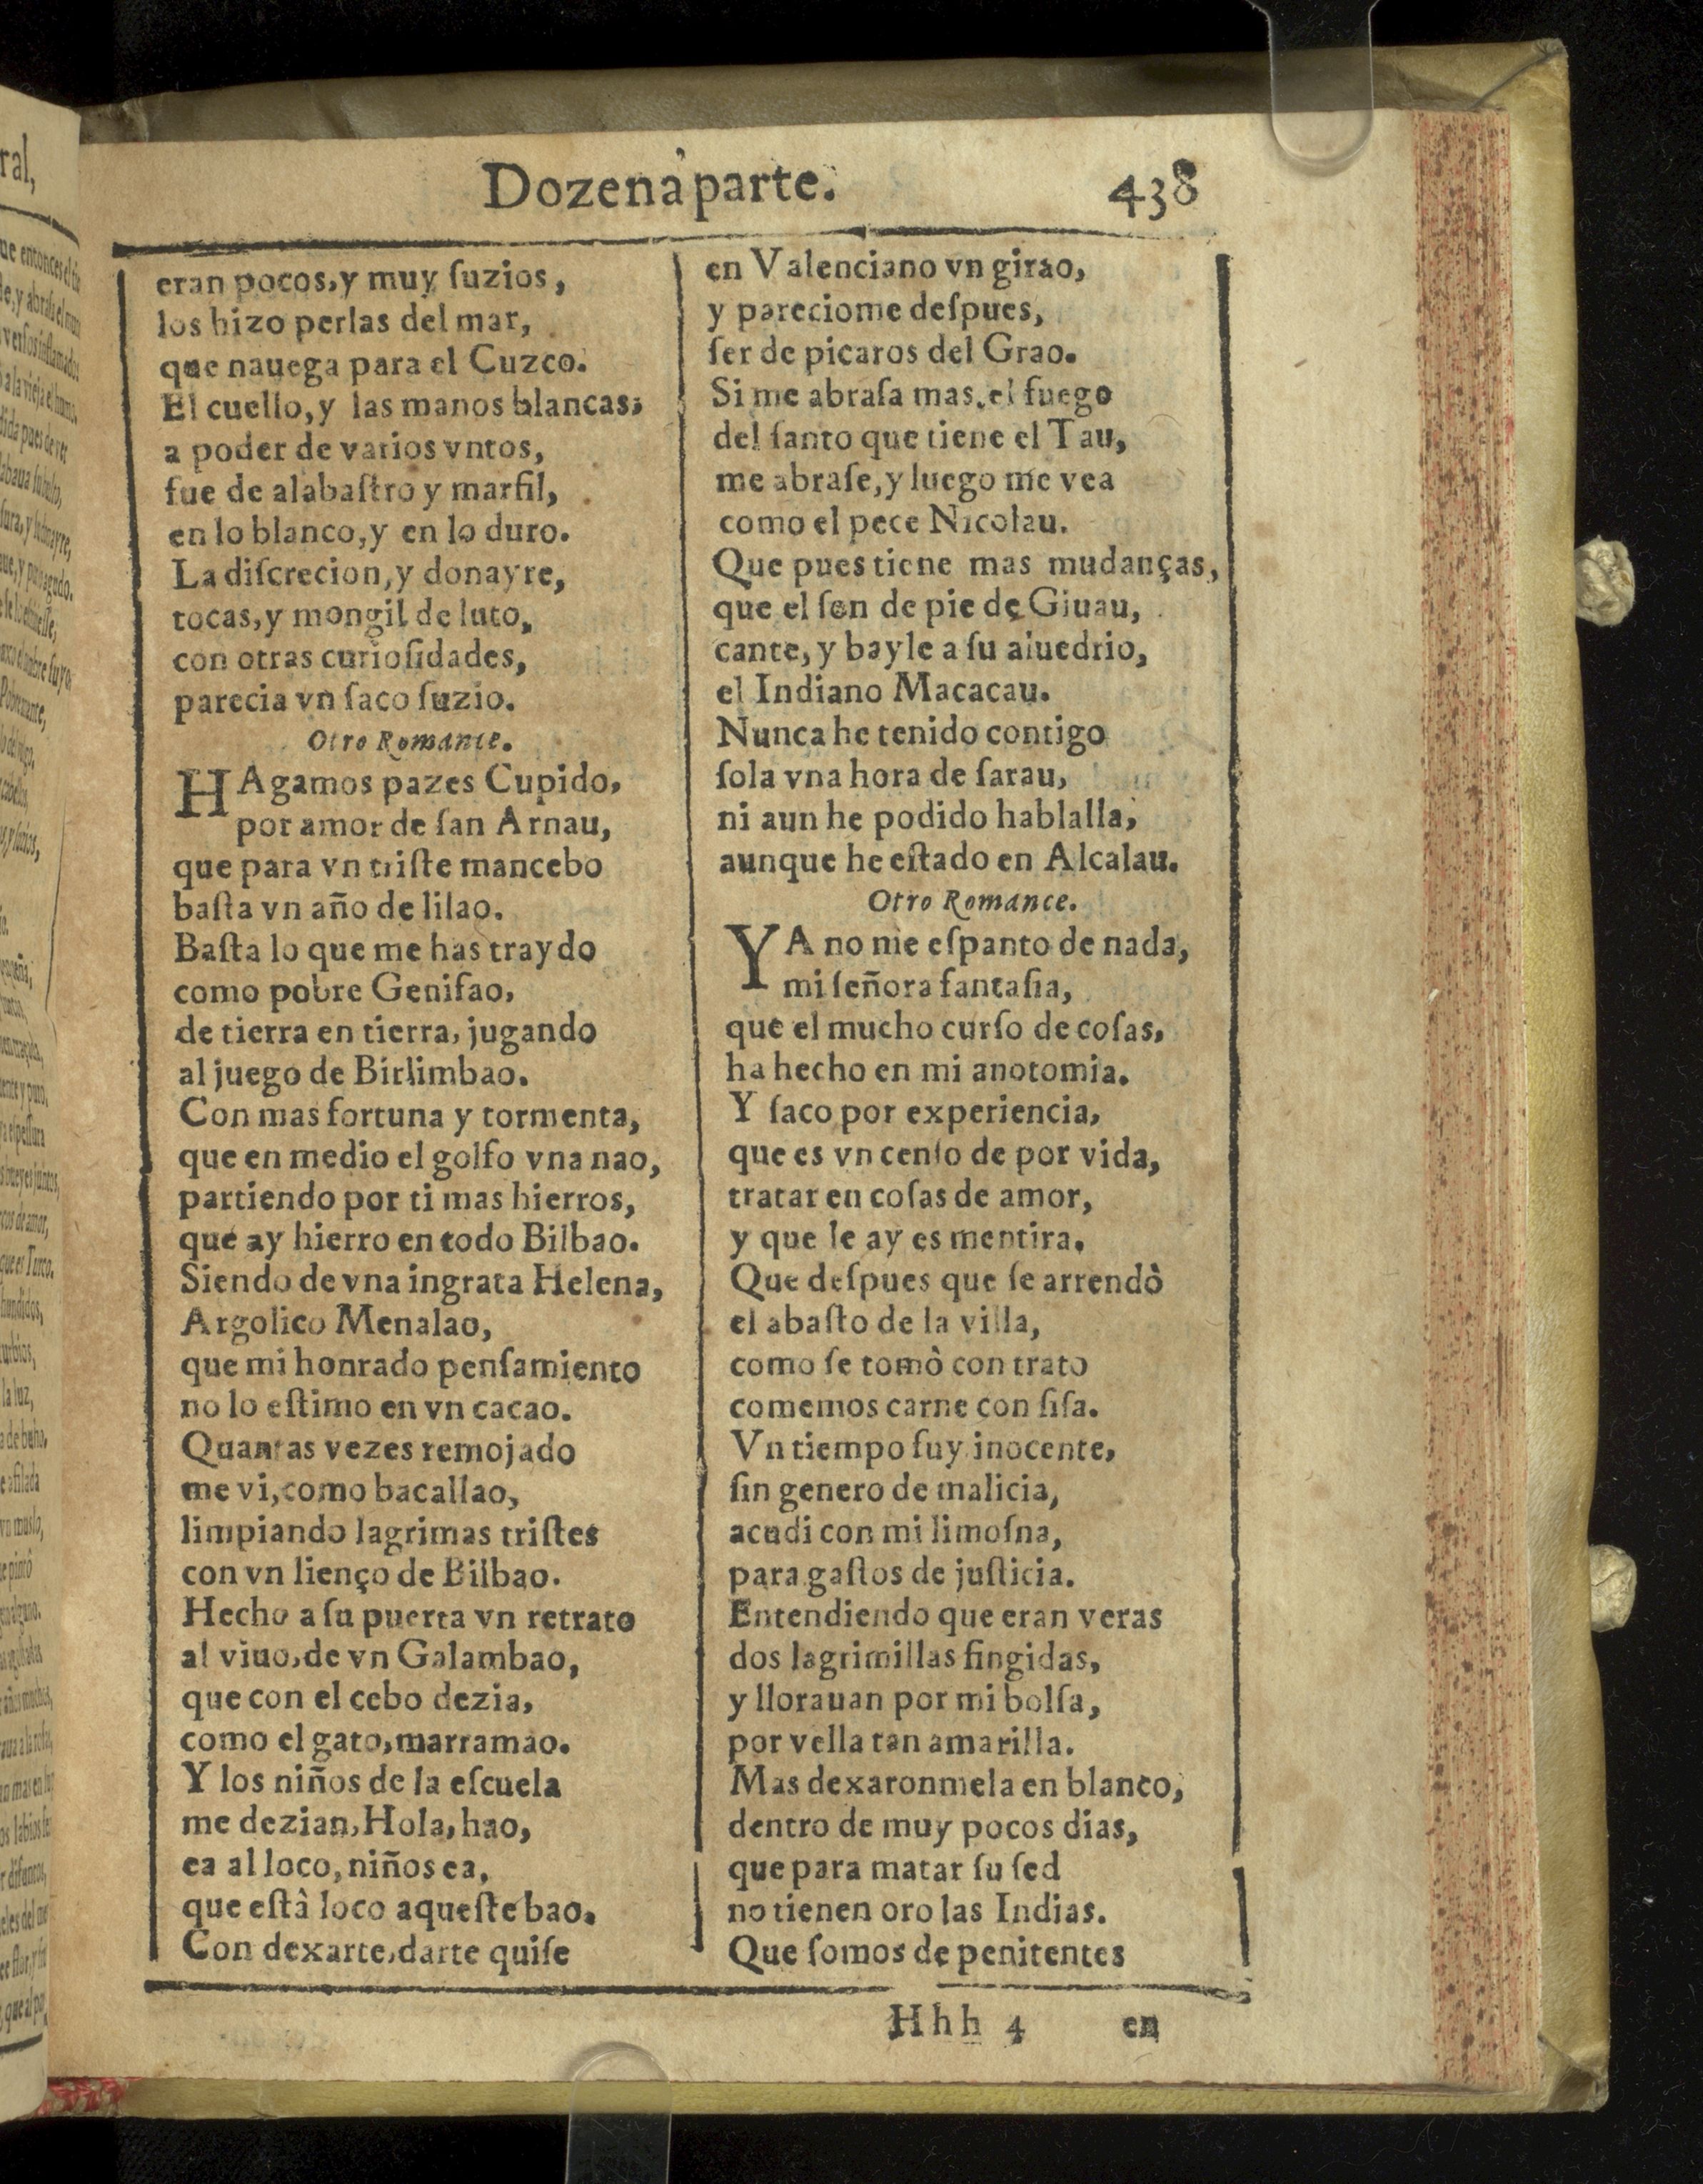 Dozena parte. 438
eran pocos, y muy ſuzios,
los hizo perlas del mar,
que nauega para el Cuzco.
El cuello, y las manos blancas,
a poder de varios vntos,
fue de alabaſtro y marfil,
en lo blanco, y en lo duro.
La diſcrecion, y donayre,
tocas, y mongil de luto,
con otras curioſidades,
parecia vn ſaco ſuzio.
Otro Romance.
HAgamos pazes Cupido,
por amor de ſan Arnau,
que para vn triſte mancebo
baſta vn año de lilao.
Baſta lo que me has traydo
como pobre Geniſao,
de tierra en tierra, jugando
al juego de Birlimbao.
Con mas fortuna y tormenta,
que en medio el golfo vna nao,
partiendo por ti mas hierros,
que ay hierro en todo Bilbao.
Siendo de vna ingrata Helena,
Argolico Menalao,
que mi honrado penſamiento
no lo eſtimo en vn cacao.
Quantas vezes remojado
me vi, como bacallao,
limpiando lagrimas triſtes
con vn lienço de Bilbao.
Hecho a ſu puerta vn retrato
al viuo, de vn Galambao,
que con el cebo dezia,
como el gato, marramao.
Y los niños de la eſcuela
me dezian, Hola, hao,
ea al loco, niños ea,
que eſtâ loco aqueſte bao.
Con dexarte, darte quiſe
en Valenciano vn girao,
y pareciome deſpues,
ſer de picaros del Grao.
Si me abraſa mas, el fuego
del ſanto que tiene el Tau,
me abraſe, y luego me vea
como el pece Nicolau.
Que pues tiene mas mudanças,
que el ſon de pie de Giuau,
cante, y bayle a ſu aluedrio,
el Indiano Macacau.
Nunca he tenido contigo
ſola vna hora de ſarau,
ni aun he podido hablalla,
aunque he eſtado en Alcalau.
Otro Romance.
YA no me eſpanto de nada,
mi ſeñora fantaſia,
que el mucho curſo de coſas,
ha hecho en mi anotomia.
Y ſaco por experiencia,
que es vn cenſo de por vida,
tratar en coſas de amor,
y que le ay es mentira.
Que deſpues que ſe arrendò
el abaſto de la villa,
como ſe tomò con trato
comemos carne con ſiſa.
Vn tiempo fuy inocente,
ſin genero de malicia,
acudi con mi limoſna,
para gaſtos de juſticia.
Entendiendo que eran veras
dos lagrimillas fingidas,
y llorauan por mi bolſa,
por vella tan amarilla.
Mas dexaronmela en blanco,
dentro de muy pocos dias,
que para matar ſu ſed
no tienen oro las Indias.
Que ſomos de penitentes
Hhh 4 en